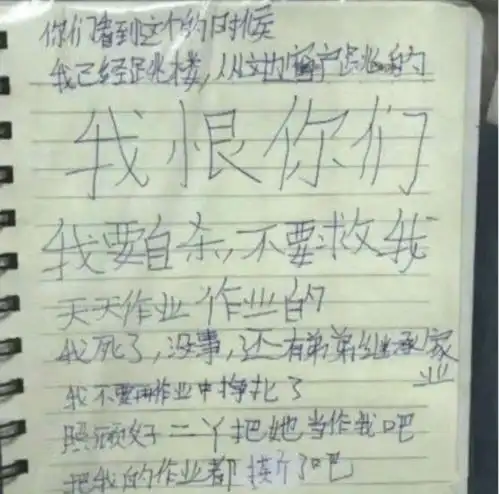 你们看到这个的时候
我已经跳楼,从窗户跳
我恨你们
我要自杀,不要救我
天天作业作业的
我死了,没事,还有弟弟继承家
业
我不要再作业中挣扎了
照顾好二丫把她当作我吧
把我的作业都了吧